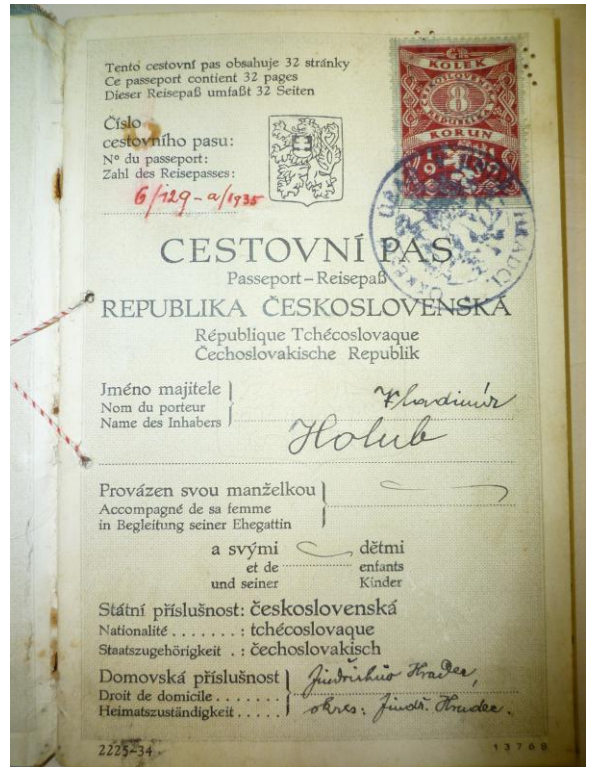 Tento cestovní pas obsahuje 32 stránky
Ce passeport contient 32 pages
Dieser Reisepaß umfaßt 32 Seiten
Číslo
cestovního pasu:
Nº du passeport:
Zahl des Reisepasses:
6/129-a/1935
ČR
KOLEK
ČESKOSLOVENSKÁ
8
REPUBLIKA
KORUN
HRADCI
CESTOVNÍ PAS
Passeport – Reisepaß
REPUBLIKA ČESKOSLOVENSKÁ
République Tchécoslovaque
Čechoslovakische Republik
Jméno majitele
Nom du porteur
Name des Inhabers
Vladimír
Holub
Provázen svou manželkou
Accompagné de sa femme
in Begleitung seiner Ehegattin
a svými dětmi
et de enfants
und seiner Kinder
Státní příslušnost: československá
Nationalité . . . . . . : tchécoslovaque
Staatszugehörigkeit . : čechoslovakisch
Domovská příslušnost Jindřichův Hradec,
Droit de domicile . . . . . . .
Heimatszuständigkeit . . . . okres: Jindř. Hradec.
2225-34
13768